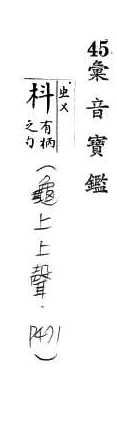 45彙音寶鑑
ㄓㄨ
枓 有柄之勺
(龜上上聲. P471)